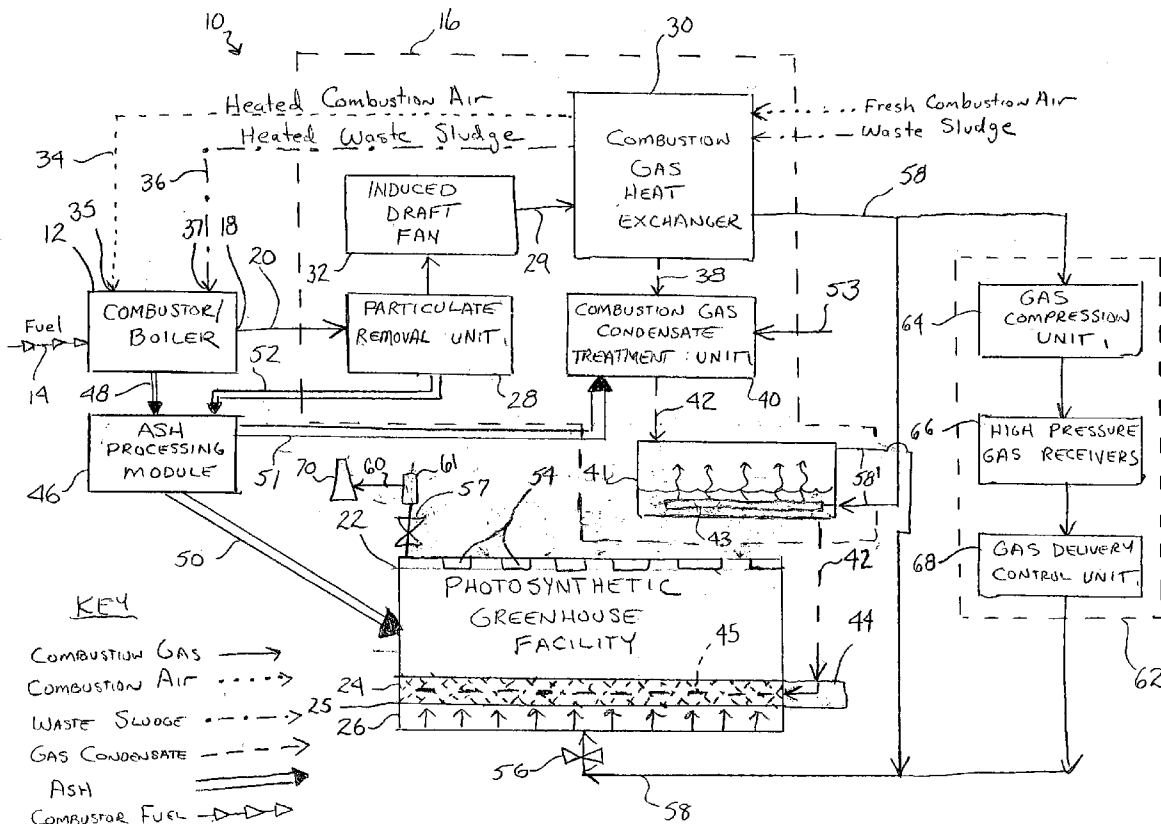 10
16
30
Heated Combustion Air
Heated Waste Sludge
Fresh Combustion Air
Waste Sludge
COMBUSTION
GAS
HEAT
EXCHANGER
34
36
58
INDUCED
DRAFT
FAN
29
35
12
37
18
20
32
38
53
Fuel
14
COMBUSTOR/
BOILER
PARTICULATE
REMOVAL UNIT
COMBUSTION GAS
CONDENSATE
TREATMENT UNIT
64
GAS
COMPRESSION
UNIT
52
48
28
42
40
ASH
PROCESSING
MODULE
46
51
70
60
61
54
57
41
43
58'
58'
66
HIGH PRESSURE
GAS RECEIVERS
50
22
PHOTOSYNTHETIC
GREENHOUSE
FACILITY
45
42
44
68
GAS DELIVERY
CONTROL UNIT
24
25
26
56
58
62
KEY
COMBUSTION GAS
COMBUSTION AIR
WASTE SLUDGE
GAS CONDENSATE
ASH
COMBUSTOR FUEL